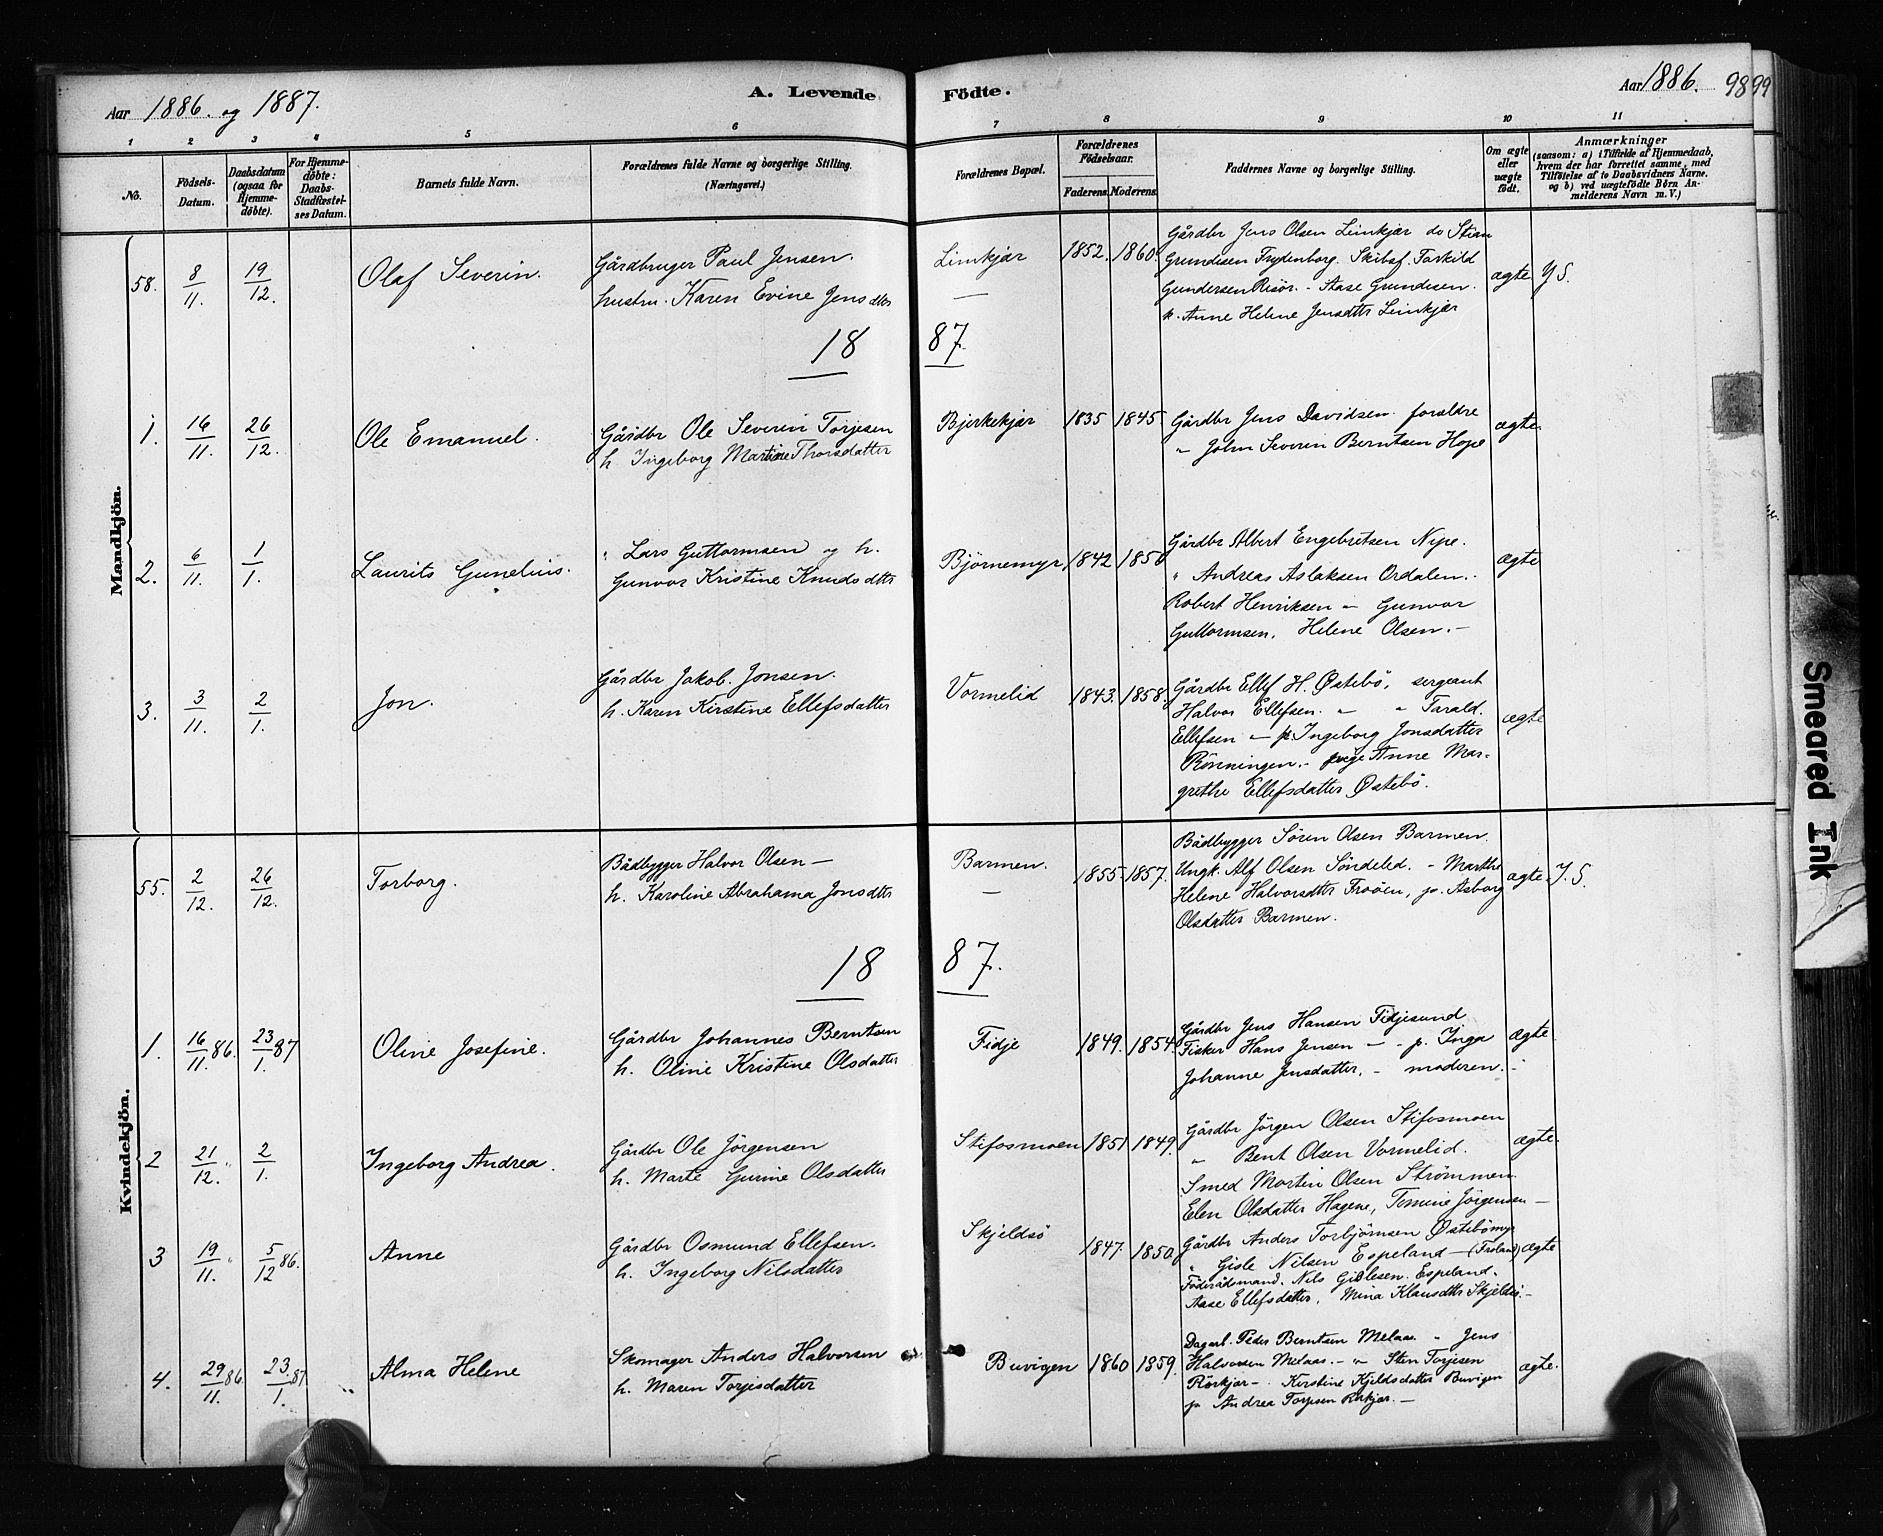 Aar 1886. og 1887.
A. Levende Födte.
Aar 1886. 98 99
1 2 3 4 5 6 7 8 9 10 11
No.
Födsels-Datum.
Daabsdatum (ogsaa for Hjemme-döbte).
For Hjemme-döbte: Daabs-Stadfæstel-ses Datum.
Barnets fulde Navn.
Forældrenes fulde Navne og borgerlige Stilling. (Næringsvei.)
Forældrenes Bopæl.
Forældrenes Födselsaar.
Faderens. Moderens.
Faddernes Navne og borgerlige Stilling.
Om ægte eller uægte födt.
Anmærkninger
(saasom: a) i Tilfælde af Hjemmedaab, hvem der har forrettet samme, med Tilföielse af to Daabsvidners Navne. og b) ved uægtefödte Börn An-melderens Navn m. V.)
Mandkjön.
58. 8/11. 19/12. Olaf Severin.
Gårdbruger Paul Jensen.
hustru. Karen Evine Jensdtter
Limkjær 1852. 1860.
Gårdbr Jens Olsen Limkjær do Stian
Grundesen Frydenborg. Skibsf. Torkild
Gundersen Risör. - Aase Grundesen.
p. Anne Helene Jensdttr Limkjær
ægte J. S.
18 87.
1. 16/11. 26/12. Ole Emanuel.
Gårdbr Ole Severin Torjesen
h. Ingeborg Martine Thorsdatter
Bjerkekjær 1835 1845
Gårdbr Jens Davidsen. forældre
" John Severin Berntsen Hope
ægte.
2. 6/11. 1/1. Laurits Gunelius.
" Lars Guttormsen og h.
Gunvor Kristine Knudsdttr
Björnemyr 1842 1850
Gårdbr Albert Engebretsen Nipe.
" Andreas Aslaksen Ordalen.
Robert Henriksen - Gunvor
Guttormsen. Helene Olsen. -
ægte
3. 3/11. 2/1. Jon.
Gårdbr Jakob. Jonsen.
h. Karen Kirstine Ellefsdatter
Vormelid 1843. 1858.
Gårdbr Ellef H. Østebö, sergeant
Halvor Ellefsen. " " Tarald.
Ellefsen - p Ingeborg Jonsdatter
Rönningen. - pige Anne Mar-
grethe Ellefsdatter Østebö.
ægte
Kvindekjön.
55. 2/12. 26/12. Torborg.
Bådbygger Halvor Olsen -
h. Karoline Abrahama Jonsdttr
Barmen. 1855. 1857.
Bådbygger Sören Olsen Barmen.
Ungk. Alf Olsen Söndeled. - Marthe
Helene Halvorsdttr Froöen, p. Asborg
Olsdatter Barmen.
ægte. J. S.
18 87.
1. 16/11. 86. 23/1. 87 Oline Josefine.
Gårdbr Johannes Berntsen
h. Oline Kristine Olsdatter
Fidje 1849. 1854.
Gårdbr Jens Hansen Fidjesund
Fisker Hans Jensen - - p. Inga
Johanne Jensdatter. - moderen. -
ægte
2 21/12. " 2/1. Ingeborg Andrea.
Gårdbr Ole Jörgensen
h. Marte Gurine Olsdatter
Stifosmoen 1851 1849.
Gårdbr Jörgen Olsen Stifosmoen
" Bent Olsen Vormelid.
Smed Martin Olsen Strömmen
Elen Olsdatter Hagene, Tomine Jörgensen -
ægte.
3 19/11. " 5/12 86. Anne
Gårdbr Osmund Ellefsen.
h. Ingeborg Nilsdatter
Skjeldsö 1847. 1850.
Gårdbr Anders Torbjörnsen Østebömyr
" Gisle Nilsen Espeland - (Froland)
Föderådsmand. Nils Gislesen. Espeland.
Aase Ellefsdatter, Mina Klausdttr Skjeldsö. -
ægte
4. 29/11. 86. 23/1. 87 Alma Helene
Skomager Anders Halvorsen
h. Maren Torjesdatter
Buvigen 1860 1859.
Dagarb. Peder Berntsen Melaas. " Jens
Halvorsen Melaas. - " Sten Torjesen
Rörkjær - Kirstine Kjeldsdatter Buvigen
p. Andrea Torjesen Rörkjær. -
ægte.
Smeared Ink